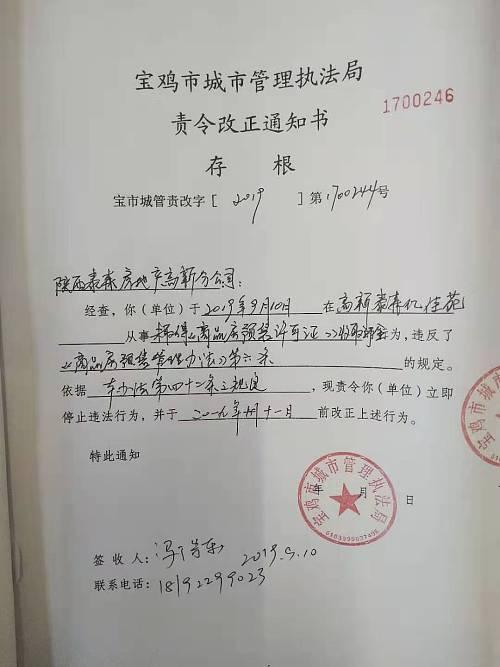 宝鸡市城市管理执法局
1700246
责令改正通知书
存 根
宝市城管责改字[ 2019 ]第1700244号
陕西泰森房地产高新分公司：
经查，你（单位）于2019年9月10日在高新泰森
从事 《商品房预售许可证》 为，违反了
《商品房预售管理办法》第六条 的规定。
依据 本办法第四十 条之规定 ，现责令你（单位）立即
停止违法行为，并于 二〇一九年 月十一日 前改正上述行为。
特此通知
宝鸡市城市管理执法局
年 月 日
签收人：
2019.9.10
联系电话：18192299023